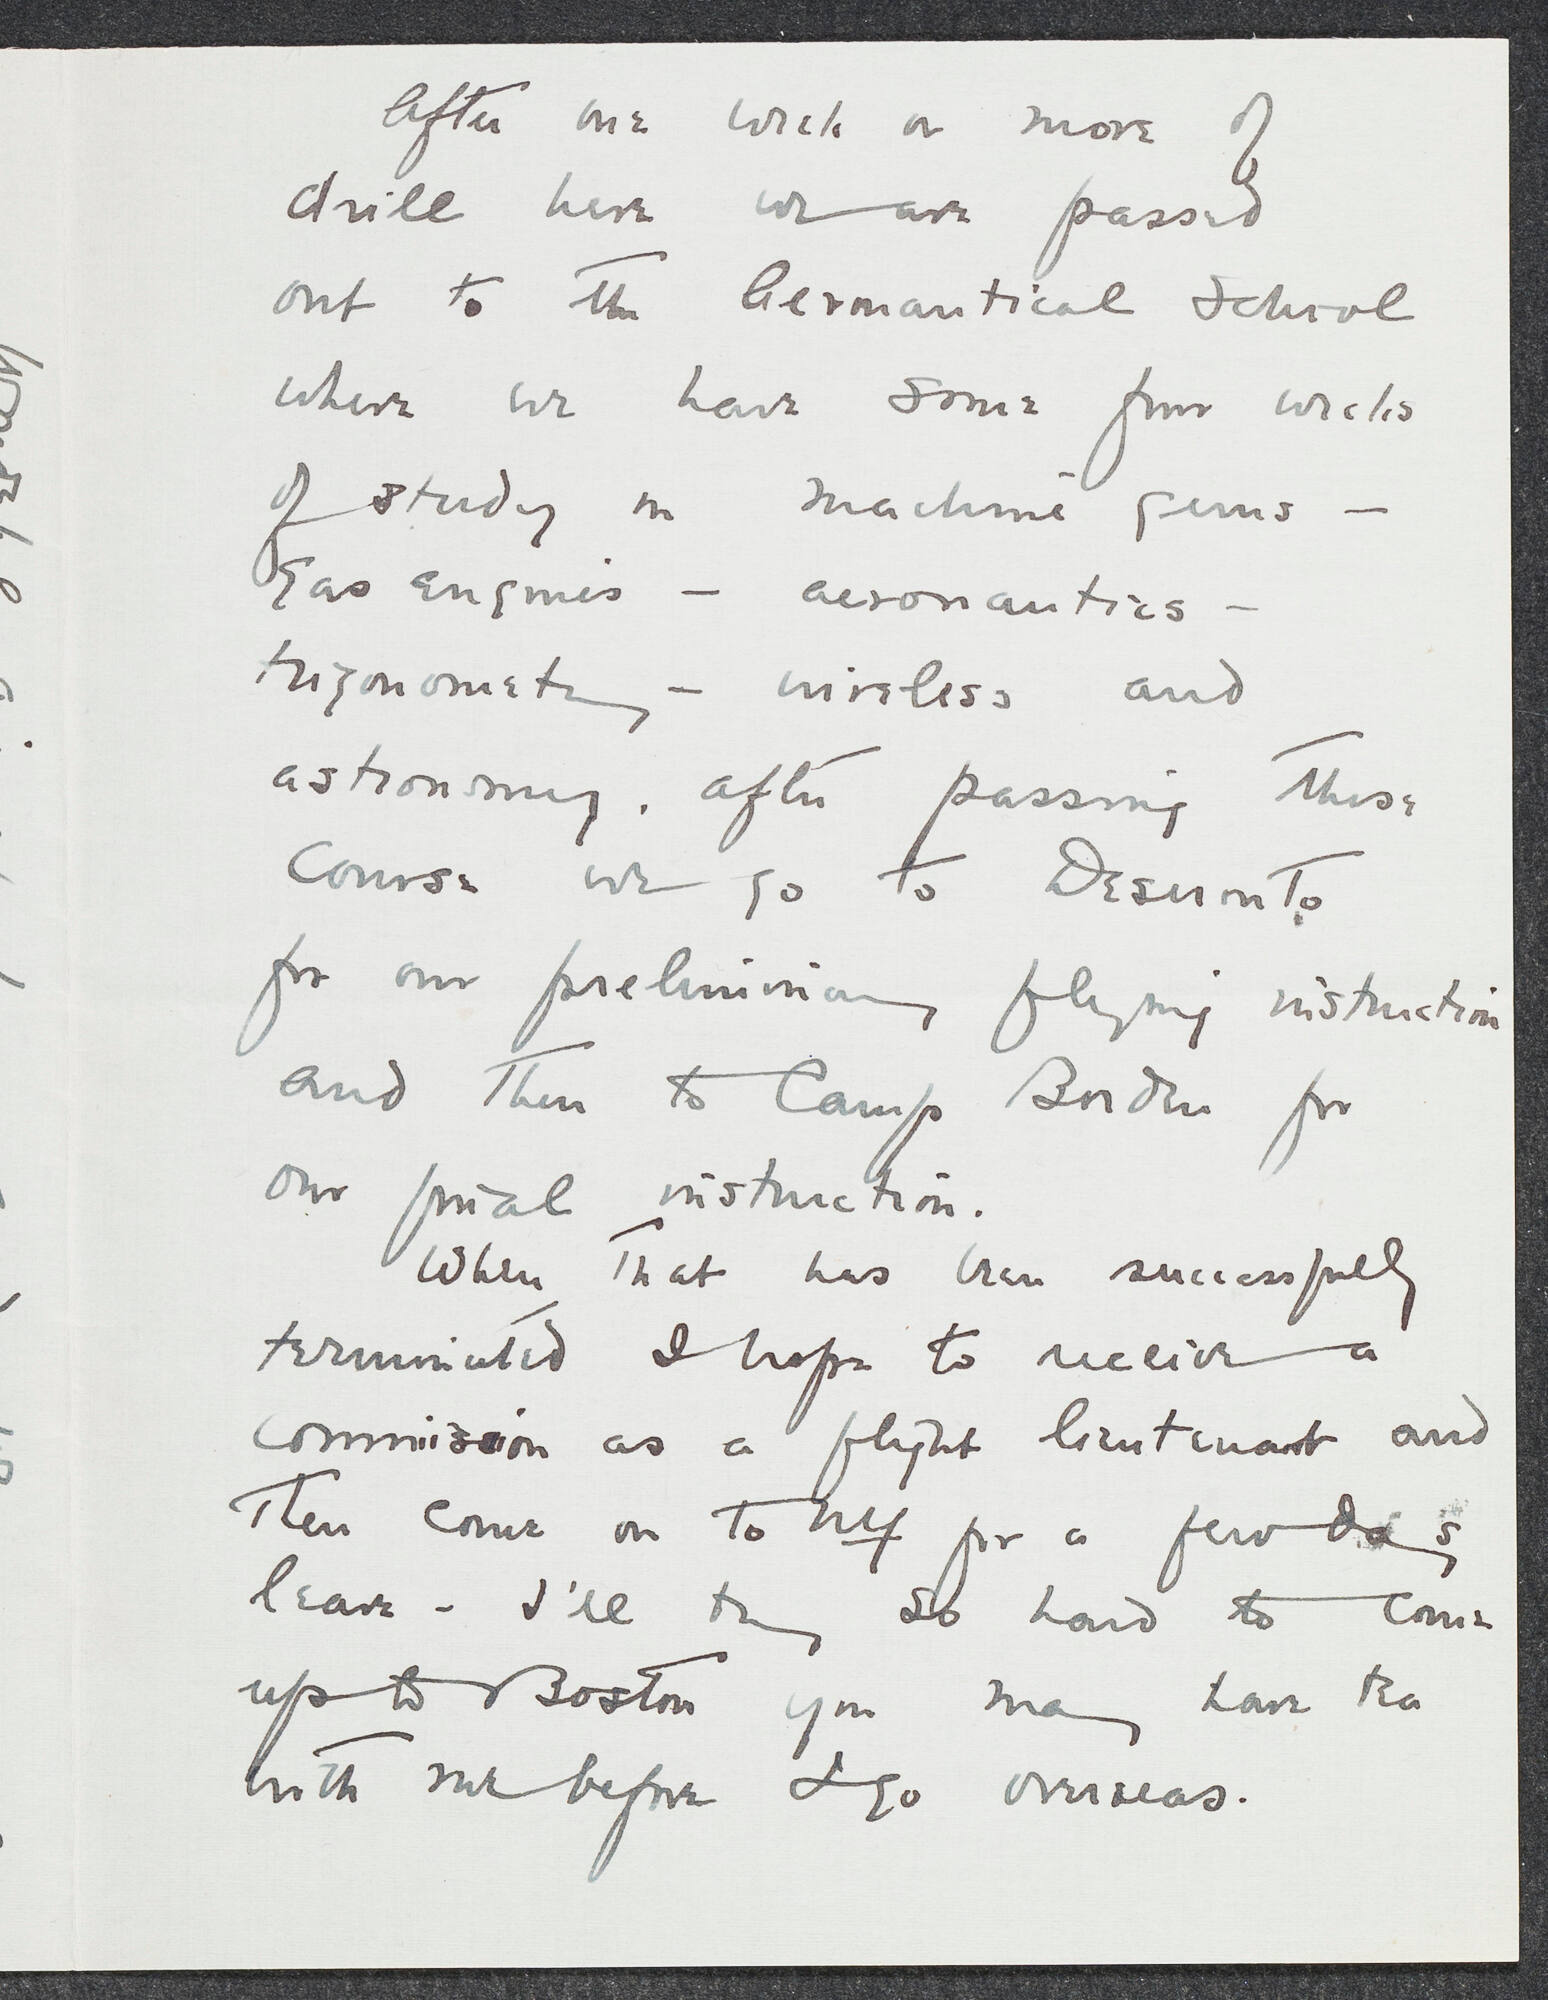 After one week or more of
drill here we are passed
out to the Aeronautical School
where we have some four weeks
of study in machine guns –
gas engines – aeronautics –
trigonometry – wireless and
astronomy. After passing these
course we go to Deseronto
for our preliminary flying instruction
and then to Camp Borden for
our final instruction.
When that has been successfully
terminated I hope to receive a
commission as a flight lieutenant and
then come on to NY for a few days
leave – I'll try so hard to come
up to Boston you may have tea
with me before I go overseas.